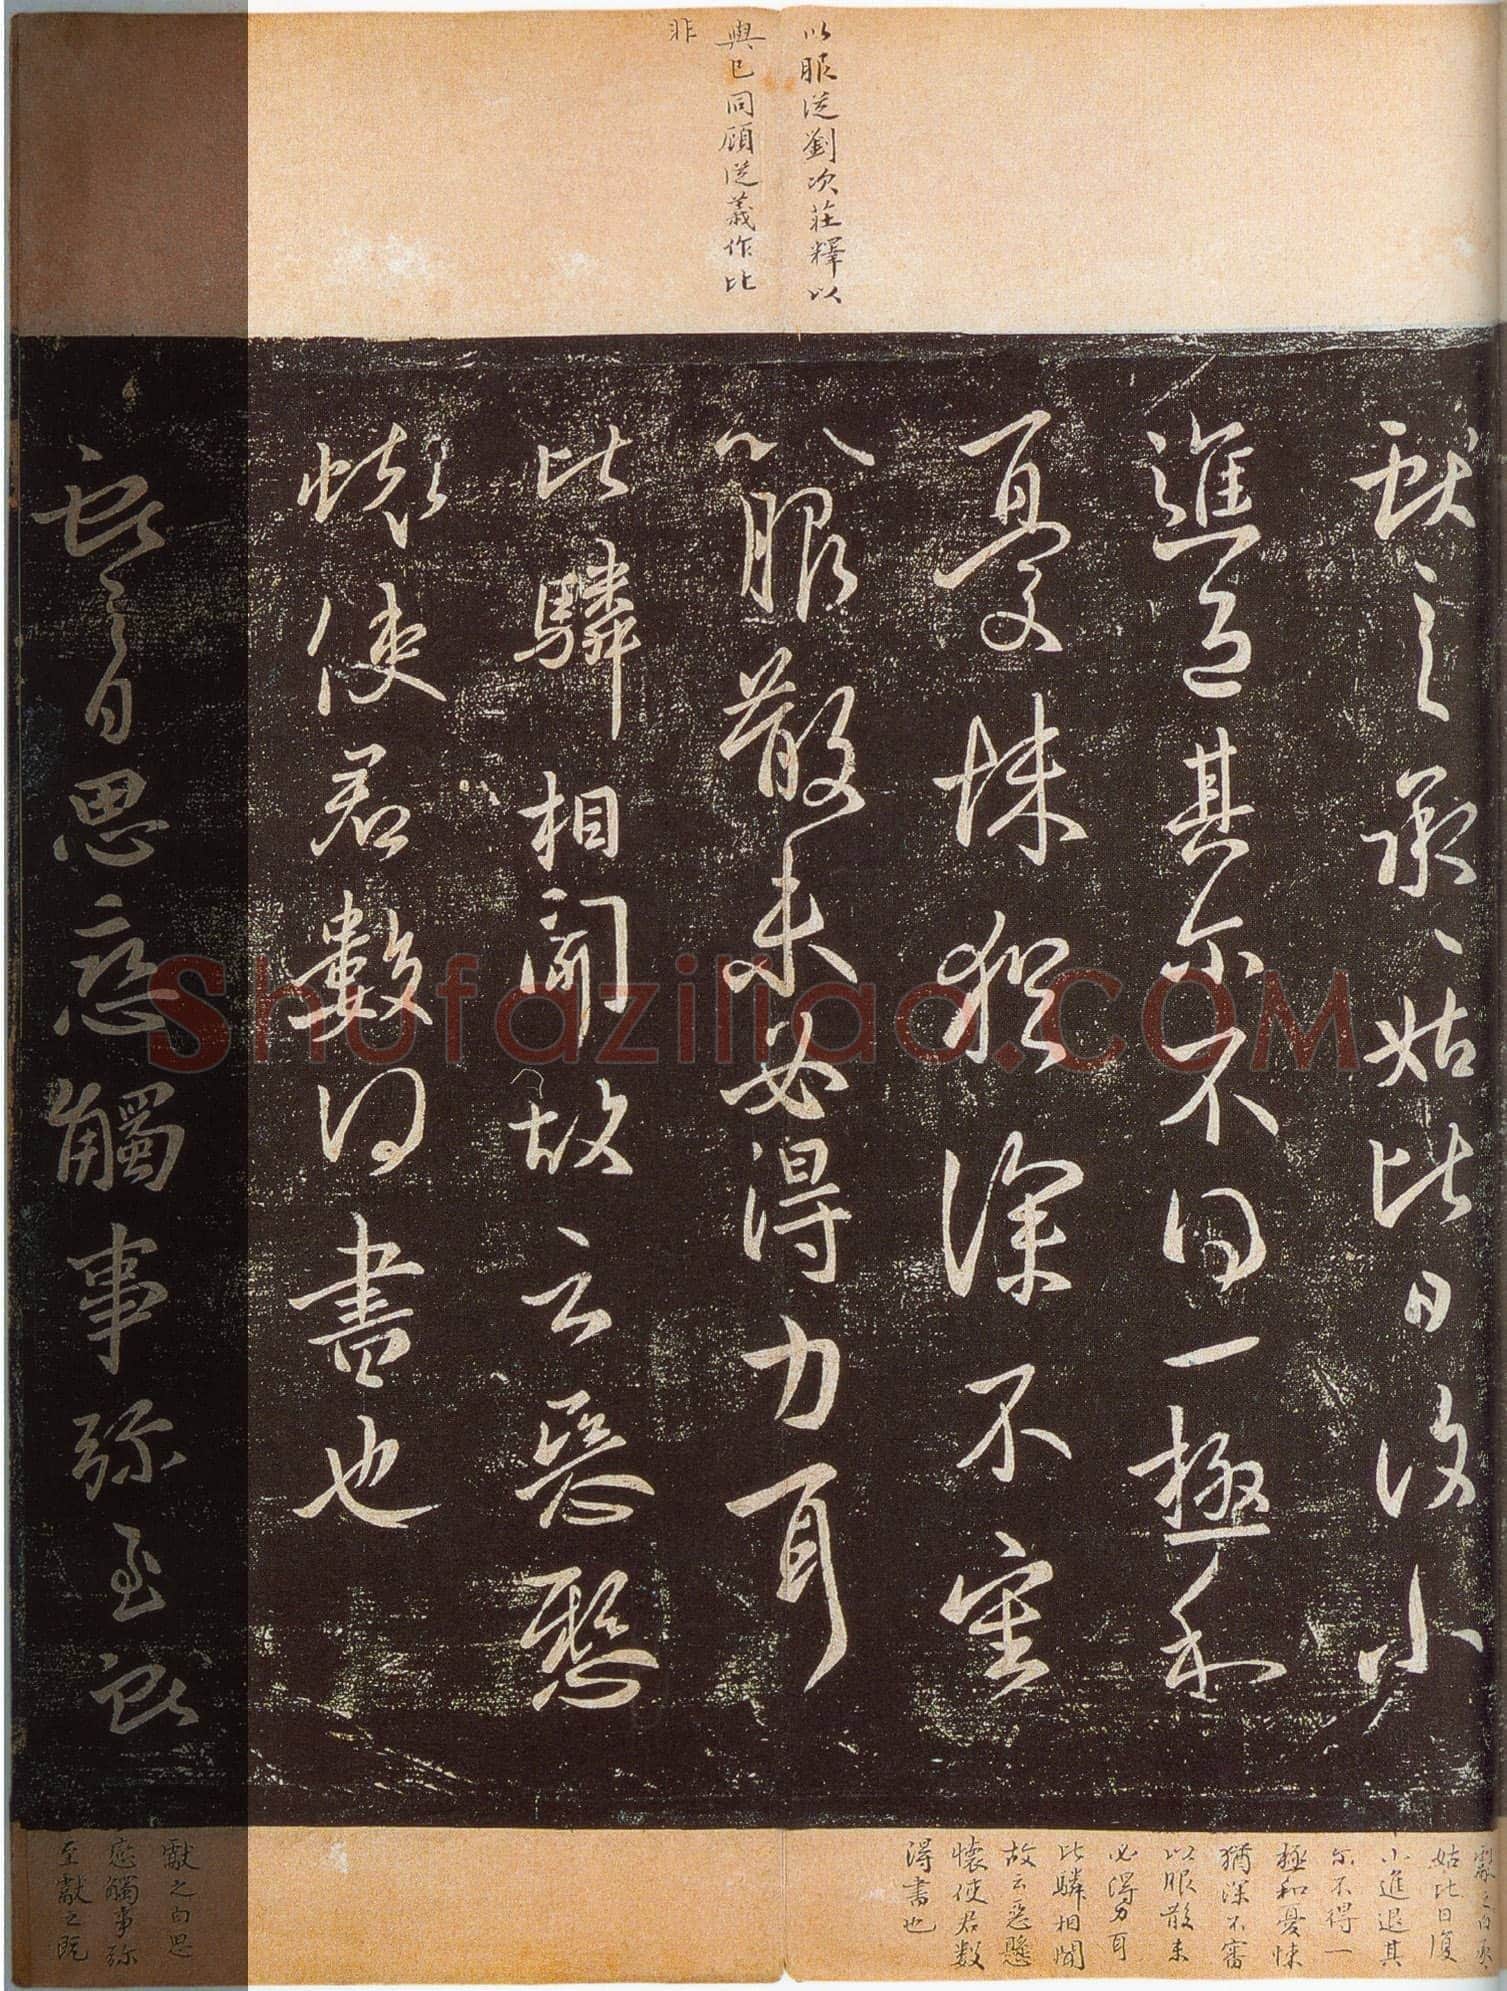 以服从劉次莊釋以
與已同顧從義作比
非
獻之承、姑比日復小
進退其尔不得一極和
憂悚猶深不審
以服散未必得力耳
比驎相聞故云惡懸
懷使君數得書也
獻之白思戀觸事弥至獻
獻之白承、
姑比日復
小進退其
尔不得一
極和憂悚
猶深不審
以服散未
必得力耳
比驎相聞
故云惡懸
懷使君数
得書也
獻之白思
戀觸事弥
至獻之既
Shufaziliao.COM